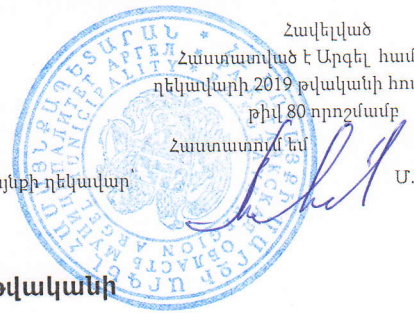 Հավելված
Հաստատված է Արգել համ
ղեկավարի 2019 թվականի հու
թիվ 80 որոշմամբ
Հաստատում եմ
այնքի ղեկավար՝ Մ.
թվականի